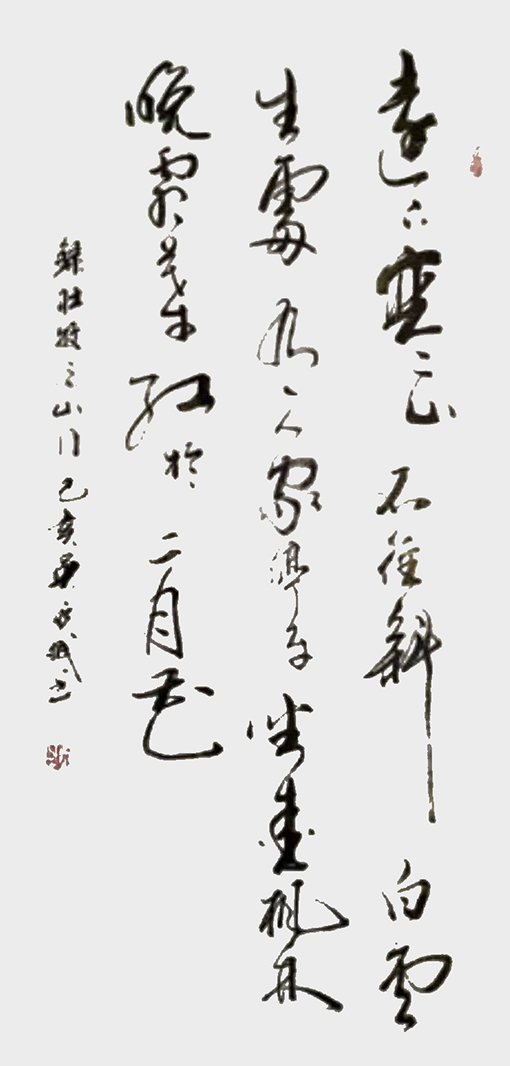 遠上寒山石徑斜白雲
生處有人家停車坐愛楓林
晚霜葉紅於二月花
錄杜牧之山行己亥